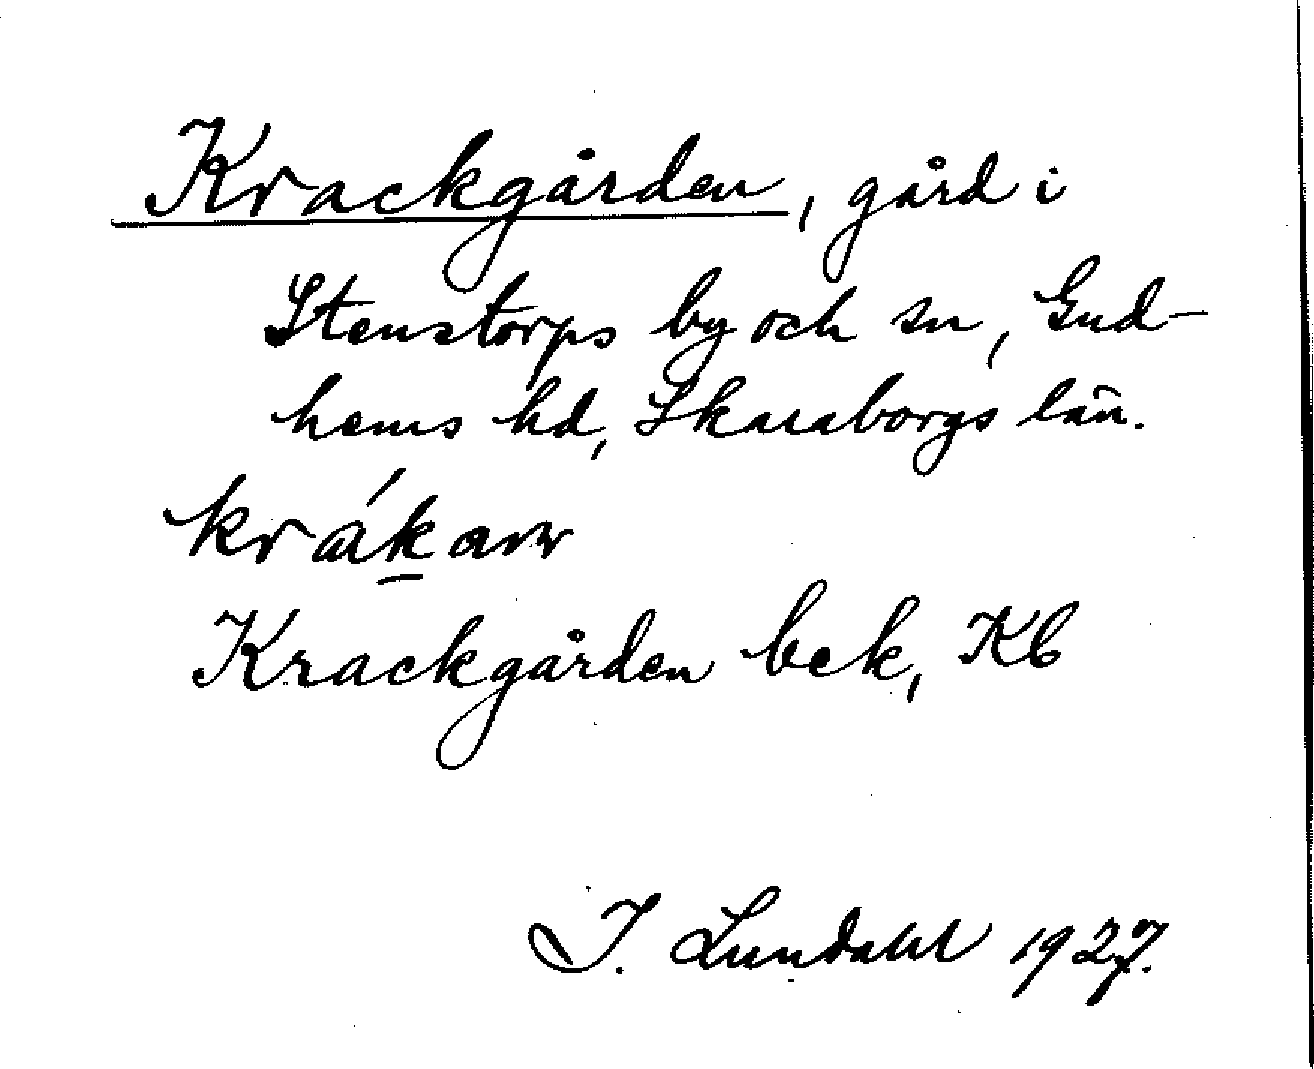 Krackgården, gård i
Stenstorps by och sn, Gud-
hems hd, Skaraborgs län.
Krackgården bek, Kb
I. Lundahl 1927.